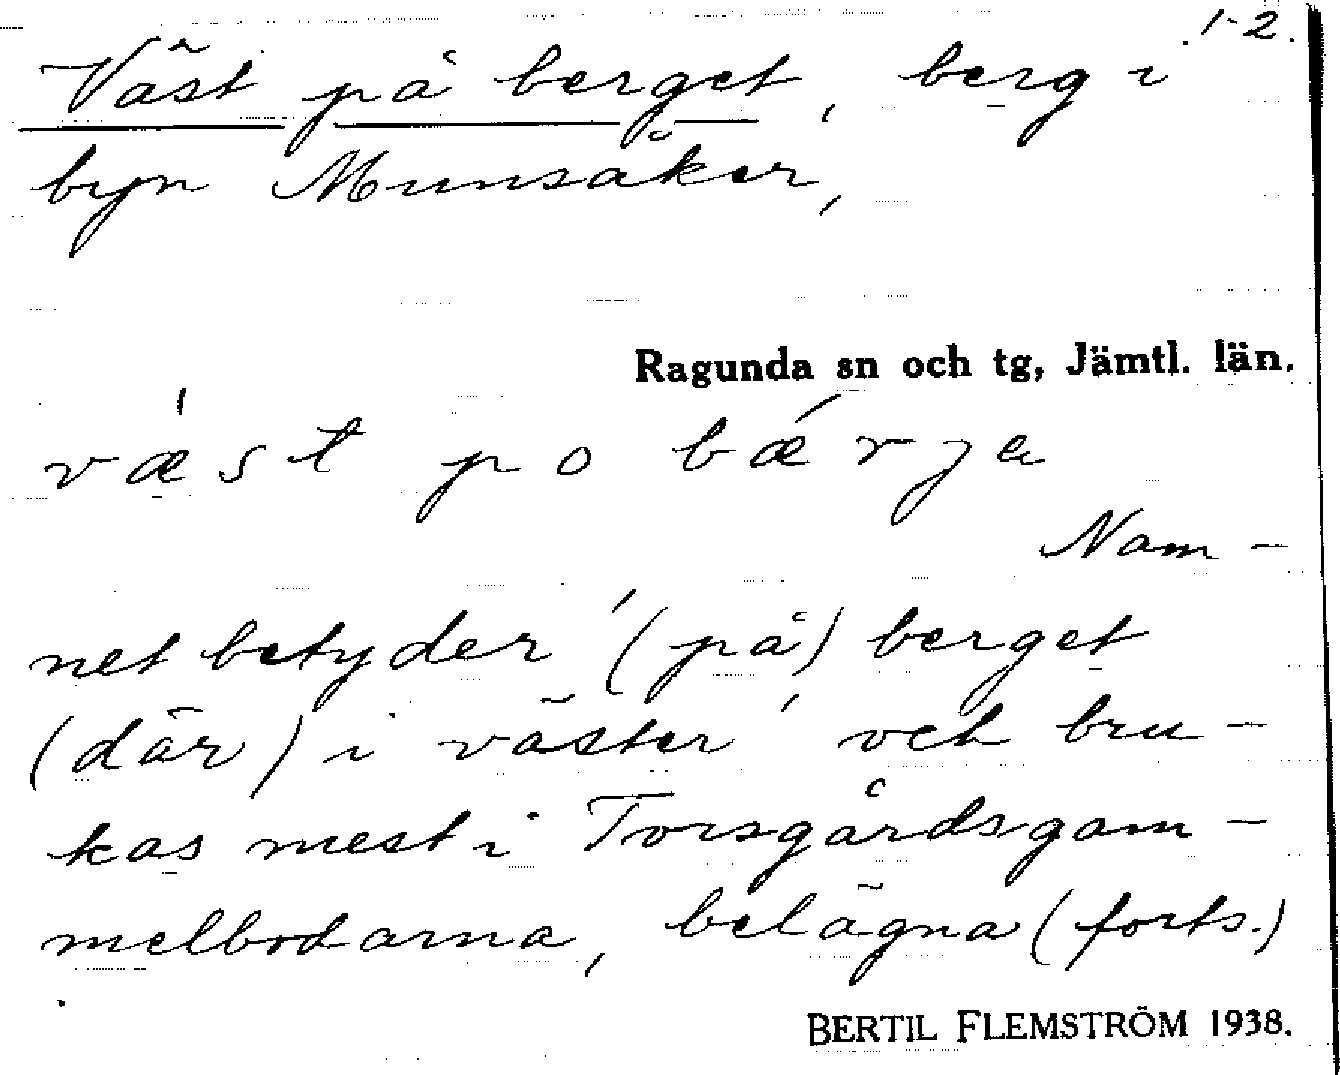 1-2.
Väst på berget, berg i
byn Munsåker,
Ragunda sn och tg, Jämtl. län.
væ'st po bǽrja
Nam-
net betyder '(på) berget
(där) i väster' och bru-
kas mest i Torsgårdsgam-
melbodarna, belägna (forts.)
BERTIL FLEMSTRÖM 1938.